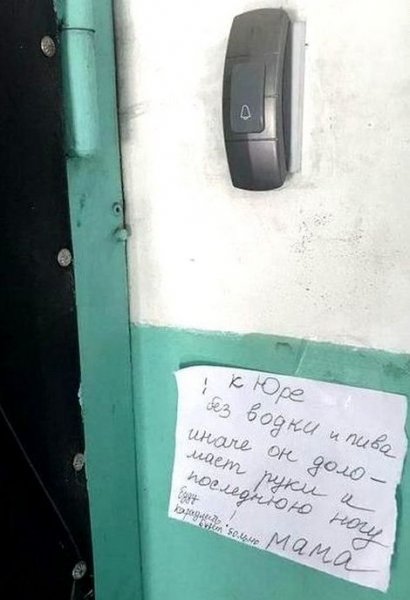 ! к Юре
без водки и пива
иначе он доло-
мает руки и
последнюю ногу
буду !
караулить
будет больно
мама